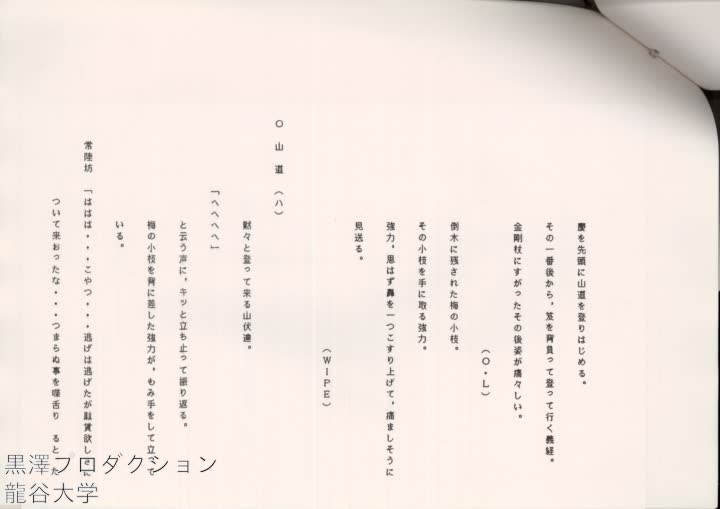 慶を先頭に山道を登りはじめる。
その一番後から，笈を背負って登って行く義経。
金剛杖にすがったその後姿が痛々しい。
（Ｏ・Ｌ）
倒木に残された梅の小枝。
その小枝を手に取る強力。
強力，思はず鼻を一つこすり上げて，痛ましそうに
見送る。
（ＷＩＰＥ）
○　山　道　（ハ）
黙々と登って来る山伏達。
「へへへへ」
と云う声に，キッと立ち止って振り返る。
梅の小枝を背に差した強力が，もみ手をして立って
いる。
常陸坊　「ははは・・・こやつ・・・逃げは逃げたが駄賃欲しさに
ついて来おったな・・・つまらぬ事を喋舌り　ると　た
黒澤プロダクション
龍谷大学